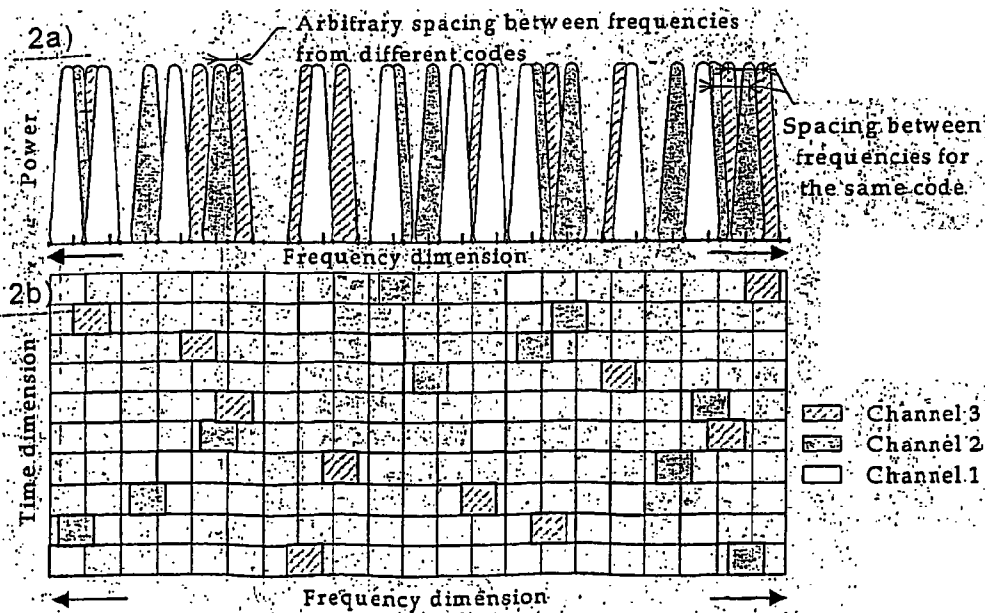 2a)
Arbitrary spacing between frequencies
from different codes
Power
Spacing between
frequencies for
the same code
Frequency dimension
2b)
Time dimension
Channel 3
Channel 2
Channel 1
Frequency dimension